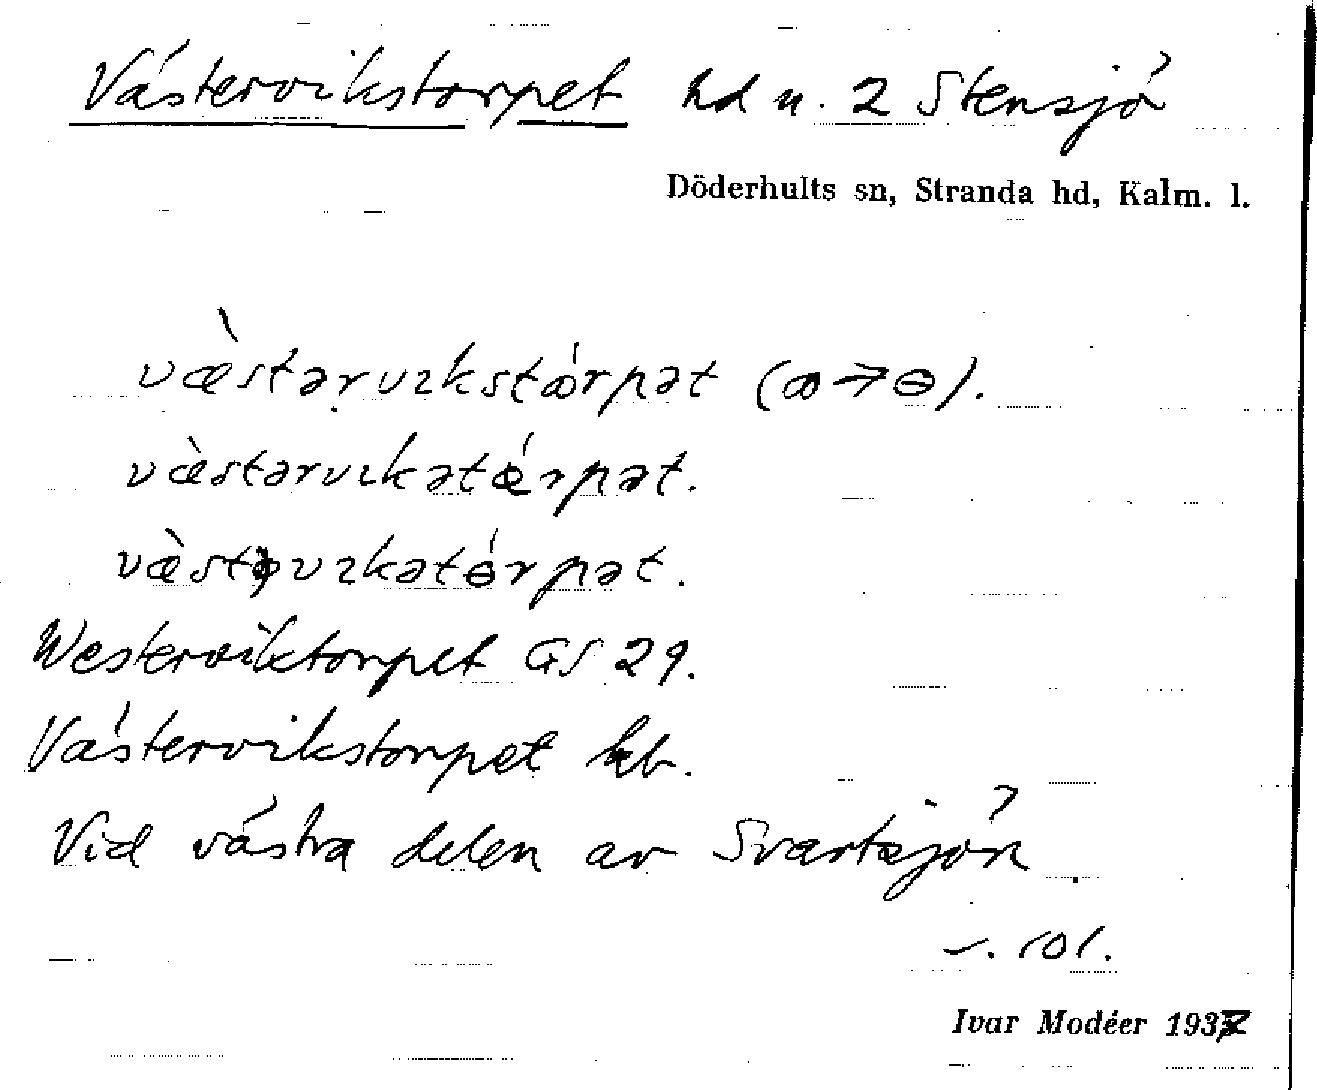 Västervikstorpet hd u. 2 Stensjö
Döderhults sn, Stranda hd, Kalm. l.
væ̀stərvɪkstꝏ́rpət (ꝏ→ɵ).
væ̀stərvɪkatǿrpət.
vɪkatɵ́rpət.
Westerviktorpet GS 29.
Västervikstorpet kb.
Vid västra delen av Svartsjön.
s. 101.
Ivar Modéer 1937